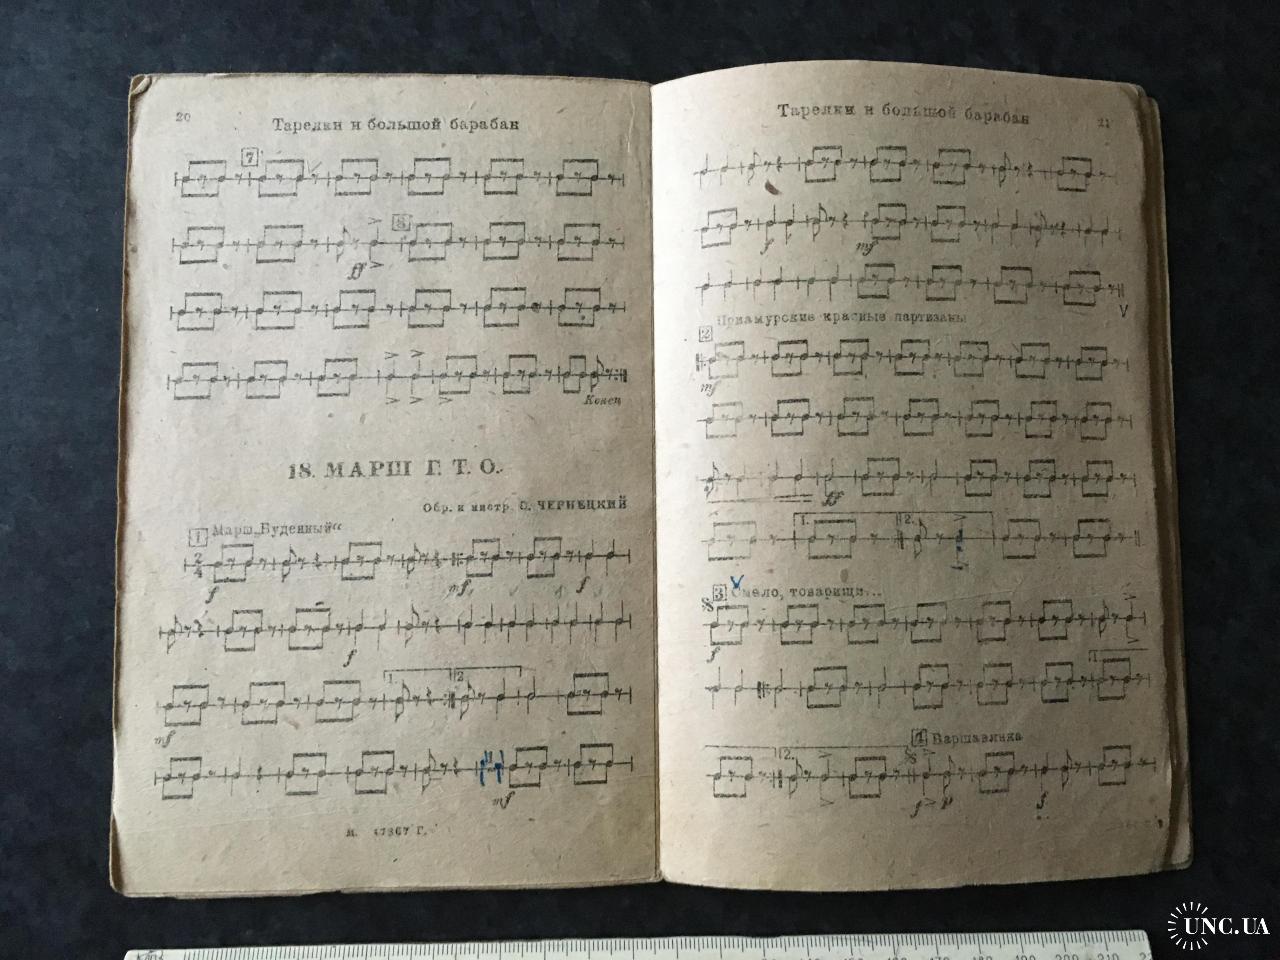 20
Тарелки и большой барабан
7
8
ff
Конец
18. МАРШ Г. Т. О.
Обр. и инстр. С. ЧЕРНЕЦКИЙ
1 Марш „Буденный“
2
4
f
mf
f
f
1.
2
mf
mf
М. 17867 Г.
Тарелки и большой барабан
21
f
mf
V
Приамурские красные партизаны
2
mf
ff
1.
2.
V
3 Смело, товарищи...
f
1
2.
4 Варшавянка
f
p
f
UNC.UA